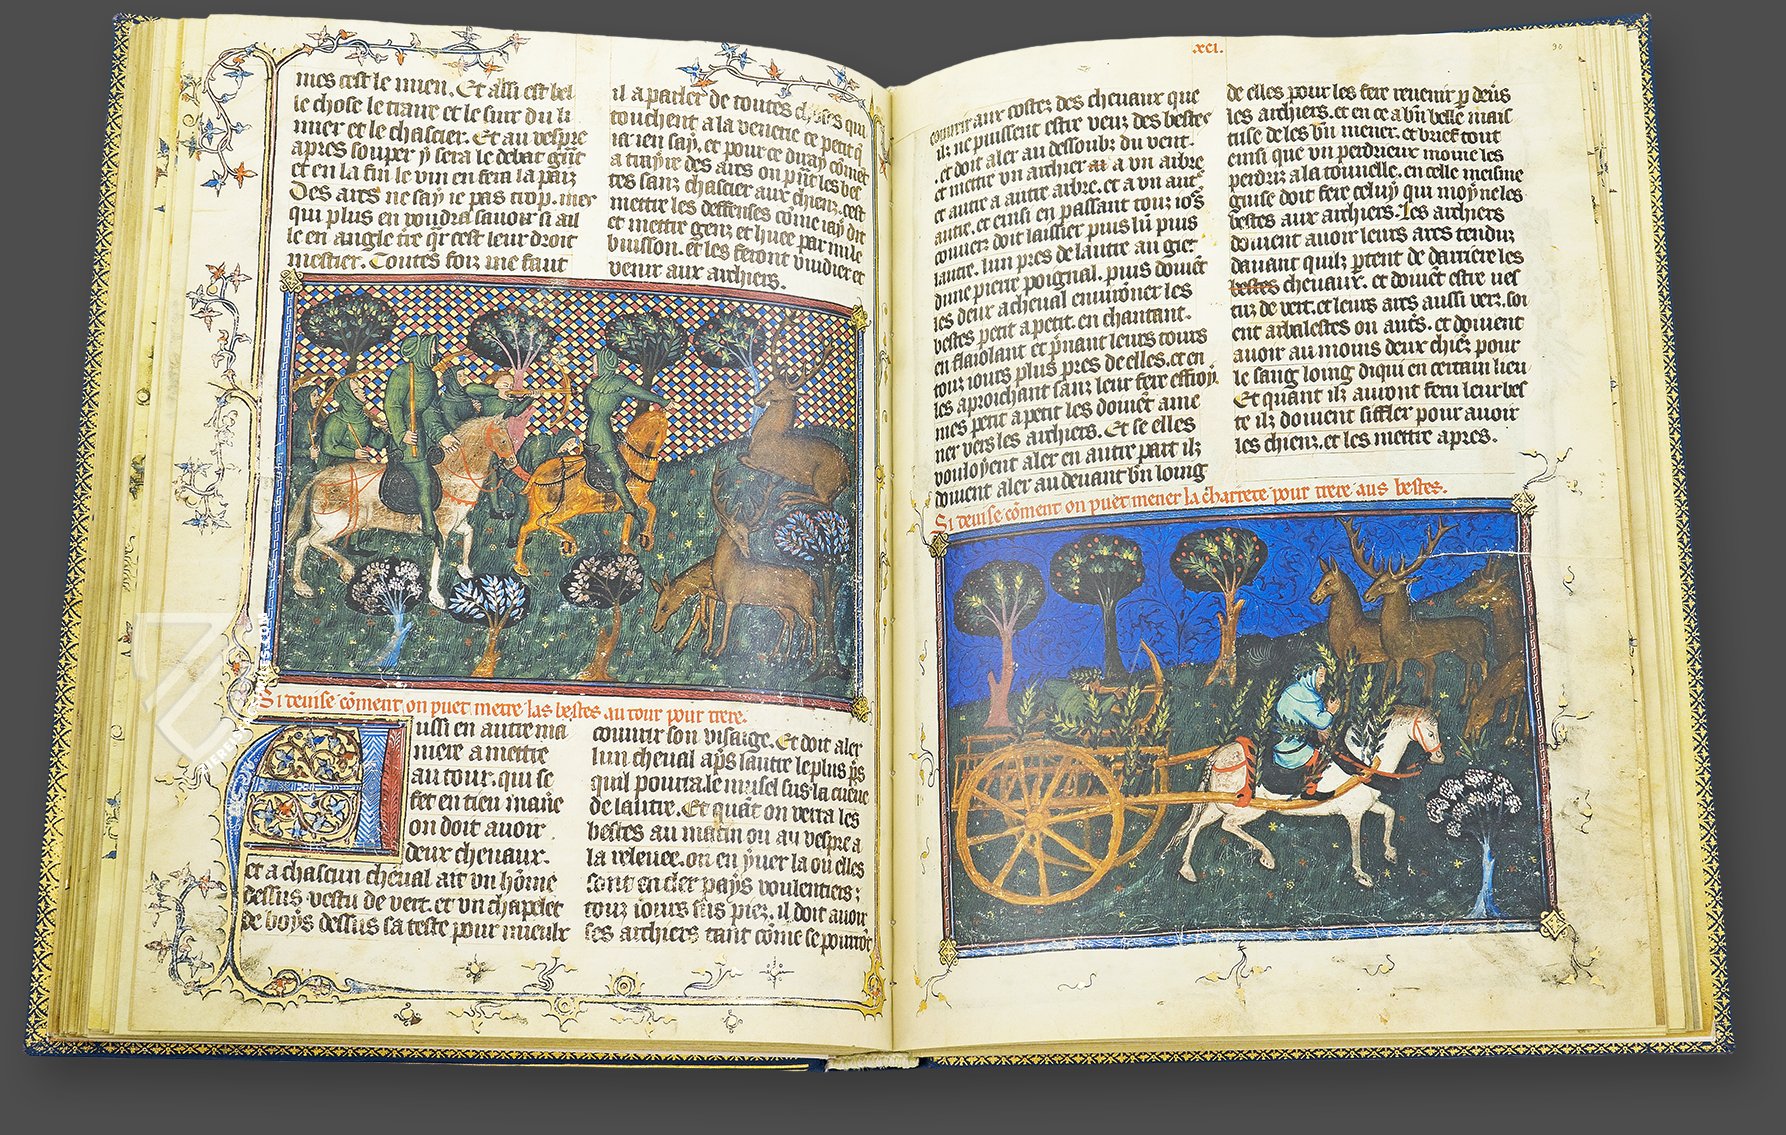 mes cest le mien. Et assi est bel
le chose le traire et le suir du li
mier et le chascier. Et au vespre
apres souper y sera le debat gñt
et en la fin le vin en fera la paiz
Des arcs ne say ie pas trop. mes
qui plus en voudra savoir si ail
le en angleťre qͬ cest leur droit
mestier. Toutes foiz me faut
il a parler de toutes choses qui
touchent a la venerie ce petit q̃
ie en say. et pour ce diray cõmēt
a trayre des arcs on puet les bes
tes sanz chascier aux chienz. cest
mettre les deffenses cõme iay dit
et mettre genz et huee par mile
buisson. et les feront vuidier et
venir aux archiers.
Si devise cõment on puet mettre las bestes au tour pour trere.
Aussi en autre ma
niere a mettre
au tour. qui se
fet en tieu mañe
on doit avoir
deux chevaux.
et a chascun cheval ait un hõme
dessus vestu de vert. et un chapelet
de boys dessus sa teste pour mieulx
couvrir son visaige. Et doit aler
lun cheval ap̃s lautre le plus p̃s
quil pourra. le musel sus la cueue
de lautre. Et quãt on verra les
bestes au matin ou au vespre a
la relevee. on en yver la ou elles
sont en cler pays voulentiers;
touz iours sus piez. il doit avoir
ses archiers tant cõme se pourrõt
.xci.
90
couvrir aux costez des chevaux que
ilz ne puissent estre veuz des bestes
. et doit aler au dessoubz du vent.
et mettre un archier a un arbre
et autre a autre arbre. et a un aut̃
autre. et einsi en passant touz io's
couvert doit laissier puis lũ puis
lautre. lun pres de lautre au giet
dune pierre poignal. puis doivēt
les deux a cheval environer les
bestes petit a petit. en chantant.
en flaiolant et p̃nant leurs tours
touz iours plus pres de elles. et en
les aproichant sanz leur fere effroy.
mes petit a petit les doivēt ame
ner vers les archiers. Et se elles
vouloyent aler en autre part ilz
doivent aler au devant b̃n loing
de elles pour les fere revenir p devs̃
les archiers. et en ce a b̃n belle mais
trise de les b̃n mener. et brief tout
einsi que un perdrieux moine les
perdriz a la tonnelle. en celle meisme
guise doit fere celuy qui moyne les
bestes aux archiers. Les archiers
doivent avoir leurs arcs tenduz
davant quilz p̱tent de darriere les
bestes chevaux. et doivēt estre ves
tuz de vert. et leurs arcs aussi vers. soi
ent arbalestes ou aut̃s. et doivent
avoir au moins deux chiēz pour
le sang loing diqui en certain lieu
Et quant ilz auront feru leur bes
te ilz doivent siffler pour avoir
les chienz. et les mettre apres.
Si devise cõment on puet mener la charrete pour trere aus bestes.